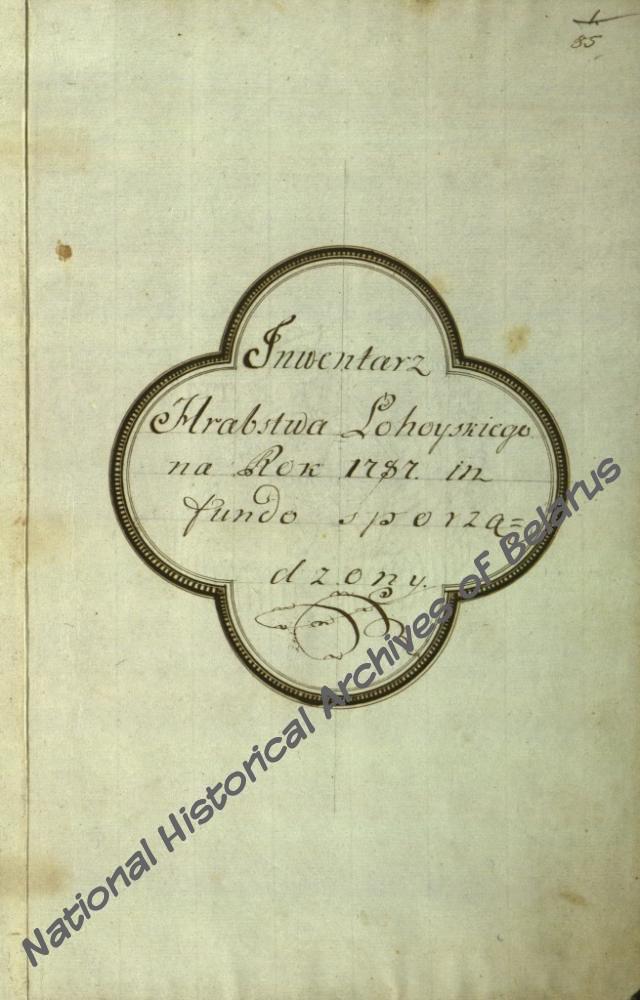 1.
85
Inwentarz
Hrabstwa Lohoyskiego
na Rok 1787. in
fundo sporzą=
dzony.
National Historical Archives of Belarus